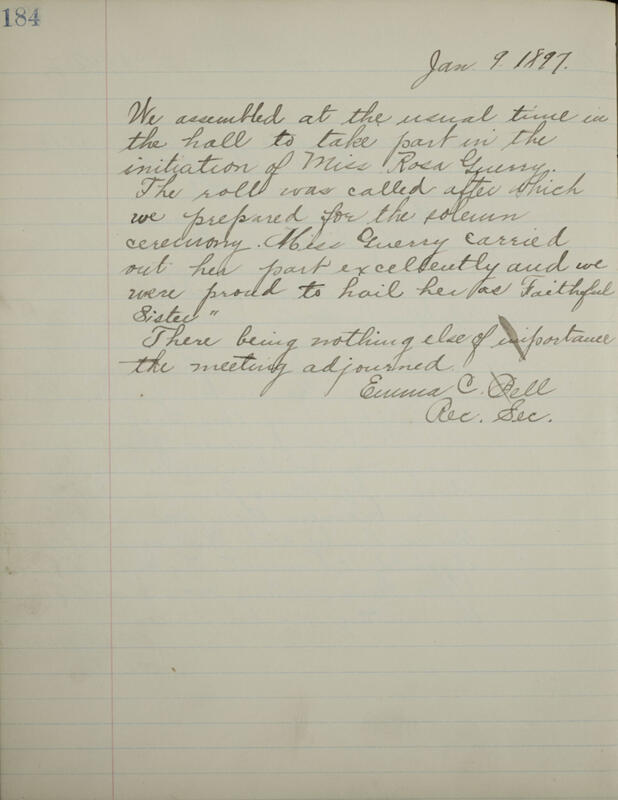 184
Jan. 9. 1897.
We assembled at the usual time in
the hall to take part in the
initiation of Miss Rosa Guerry.
The roll was called after which
we prepared for the solemn
ceremony. Miss Guerry carried
out her part excellently and we
were proud to hail her as "Faithful
Sister"
There being nothing else of importance
the meeting adjourned.
Emma C. Bell
Rec. Sec.